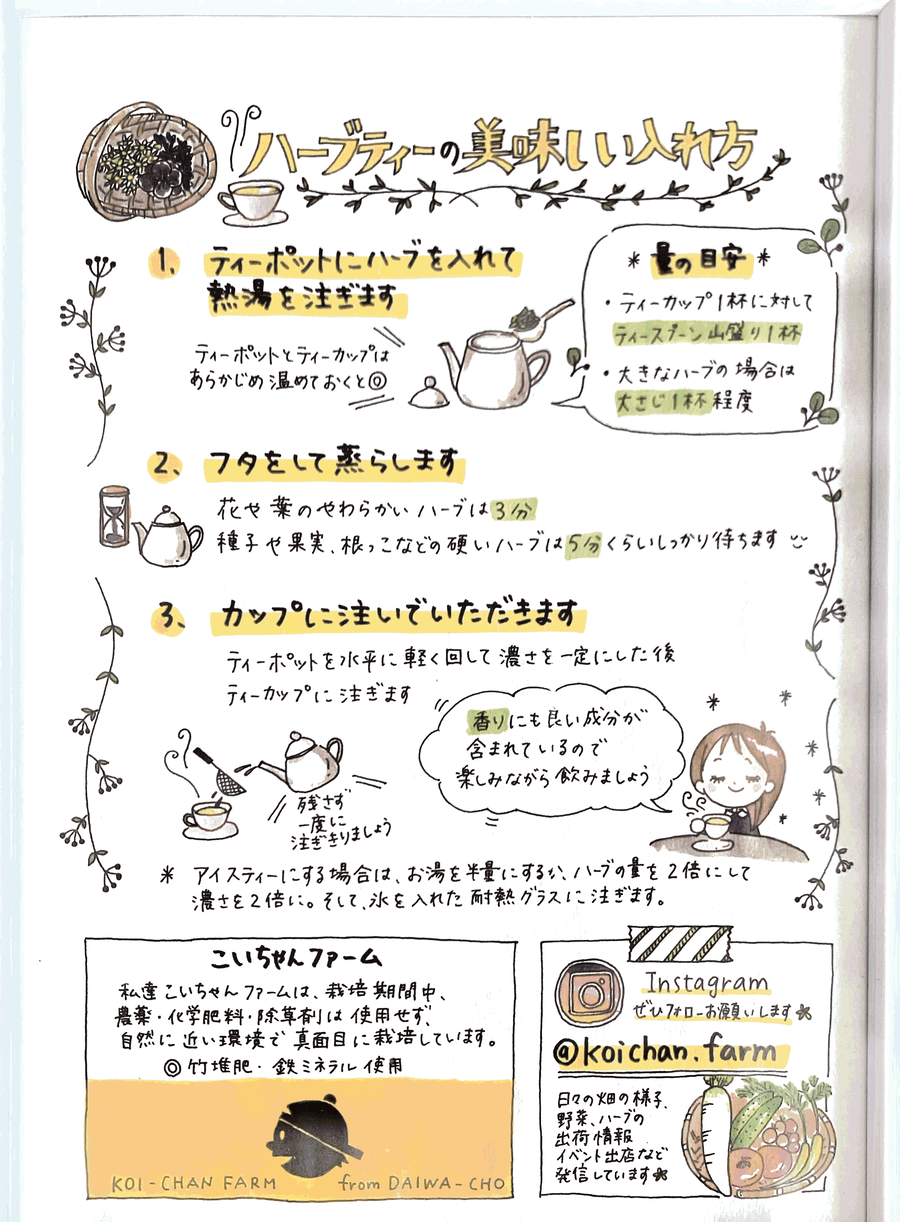 ハーブティーの美味しい入れ方
1. ティーポットにハーブを入れて
熱湯を注ぎます
ティーポットとティーカップは
あらかじめ温めておくと◎
* 量の目安 *
・ティーカップ1杯に対して
ティースプーン山盛り1杯
・大きなハーブの場合は
大さじ1杯程度
2. フタをして蒸らします
花や葉のやわらかいハーブは3分
種子や果実、根っこなどの硬いハーブは5分くらいしっかり待ちます
3. カップに注いでいただきます
ティーポットを水平に軽く回して濃さを一定にした後
ティーカップに注ぎます
香りにも良い成分が
含まれているので
楽しみながら飲みましょう
残さず
一度に
注ぎきりましょう
* アイスティーにする場合は、お湯を半量にするか、ハーブの量を2倍にして
濃さを2倍に。そして、氷を入れた耐熱グラスに注ぎます。
こいちゃんファーム
私達こいちゃんファームは、栽培期間中、
農薬・化学肥料・除草剤は使用せず、
自然に近い環境で真面目に栽培しています。
◎竹堆肥・鉄ミネラル使用
KOI-CHAN FARM from DAIWA-CHO
Instagram
ぜひフォローお願いします
@koichan.farm
日々の畑の様子、
野菜、ハーブの
出荷情報
イベント出店など
発信しています